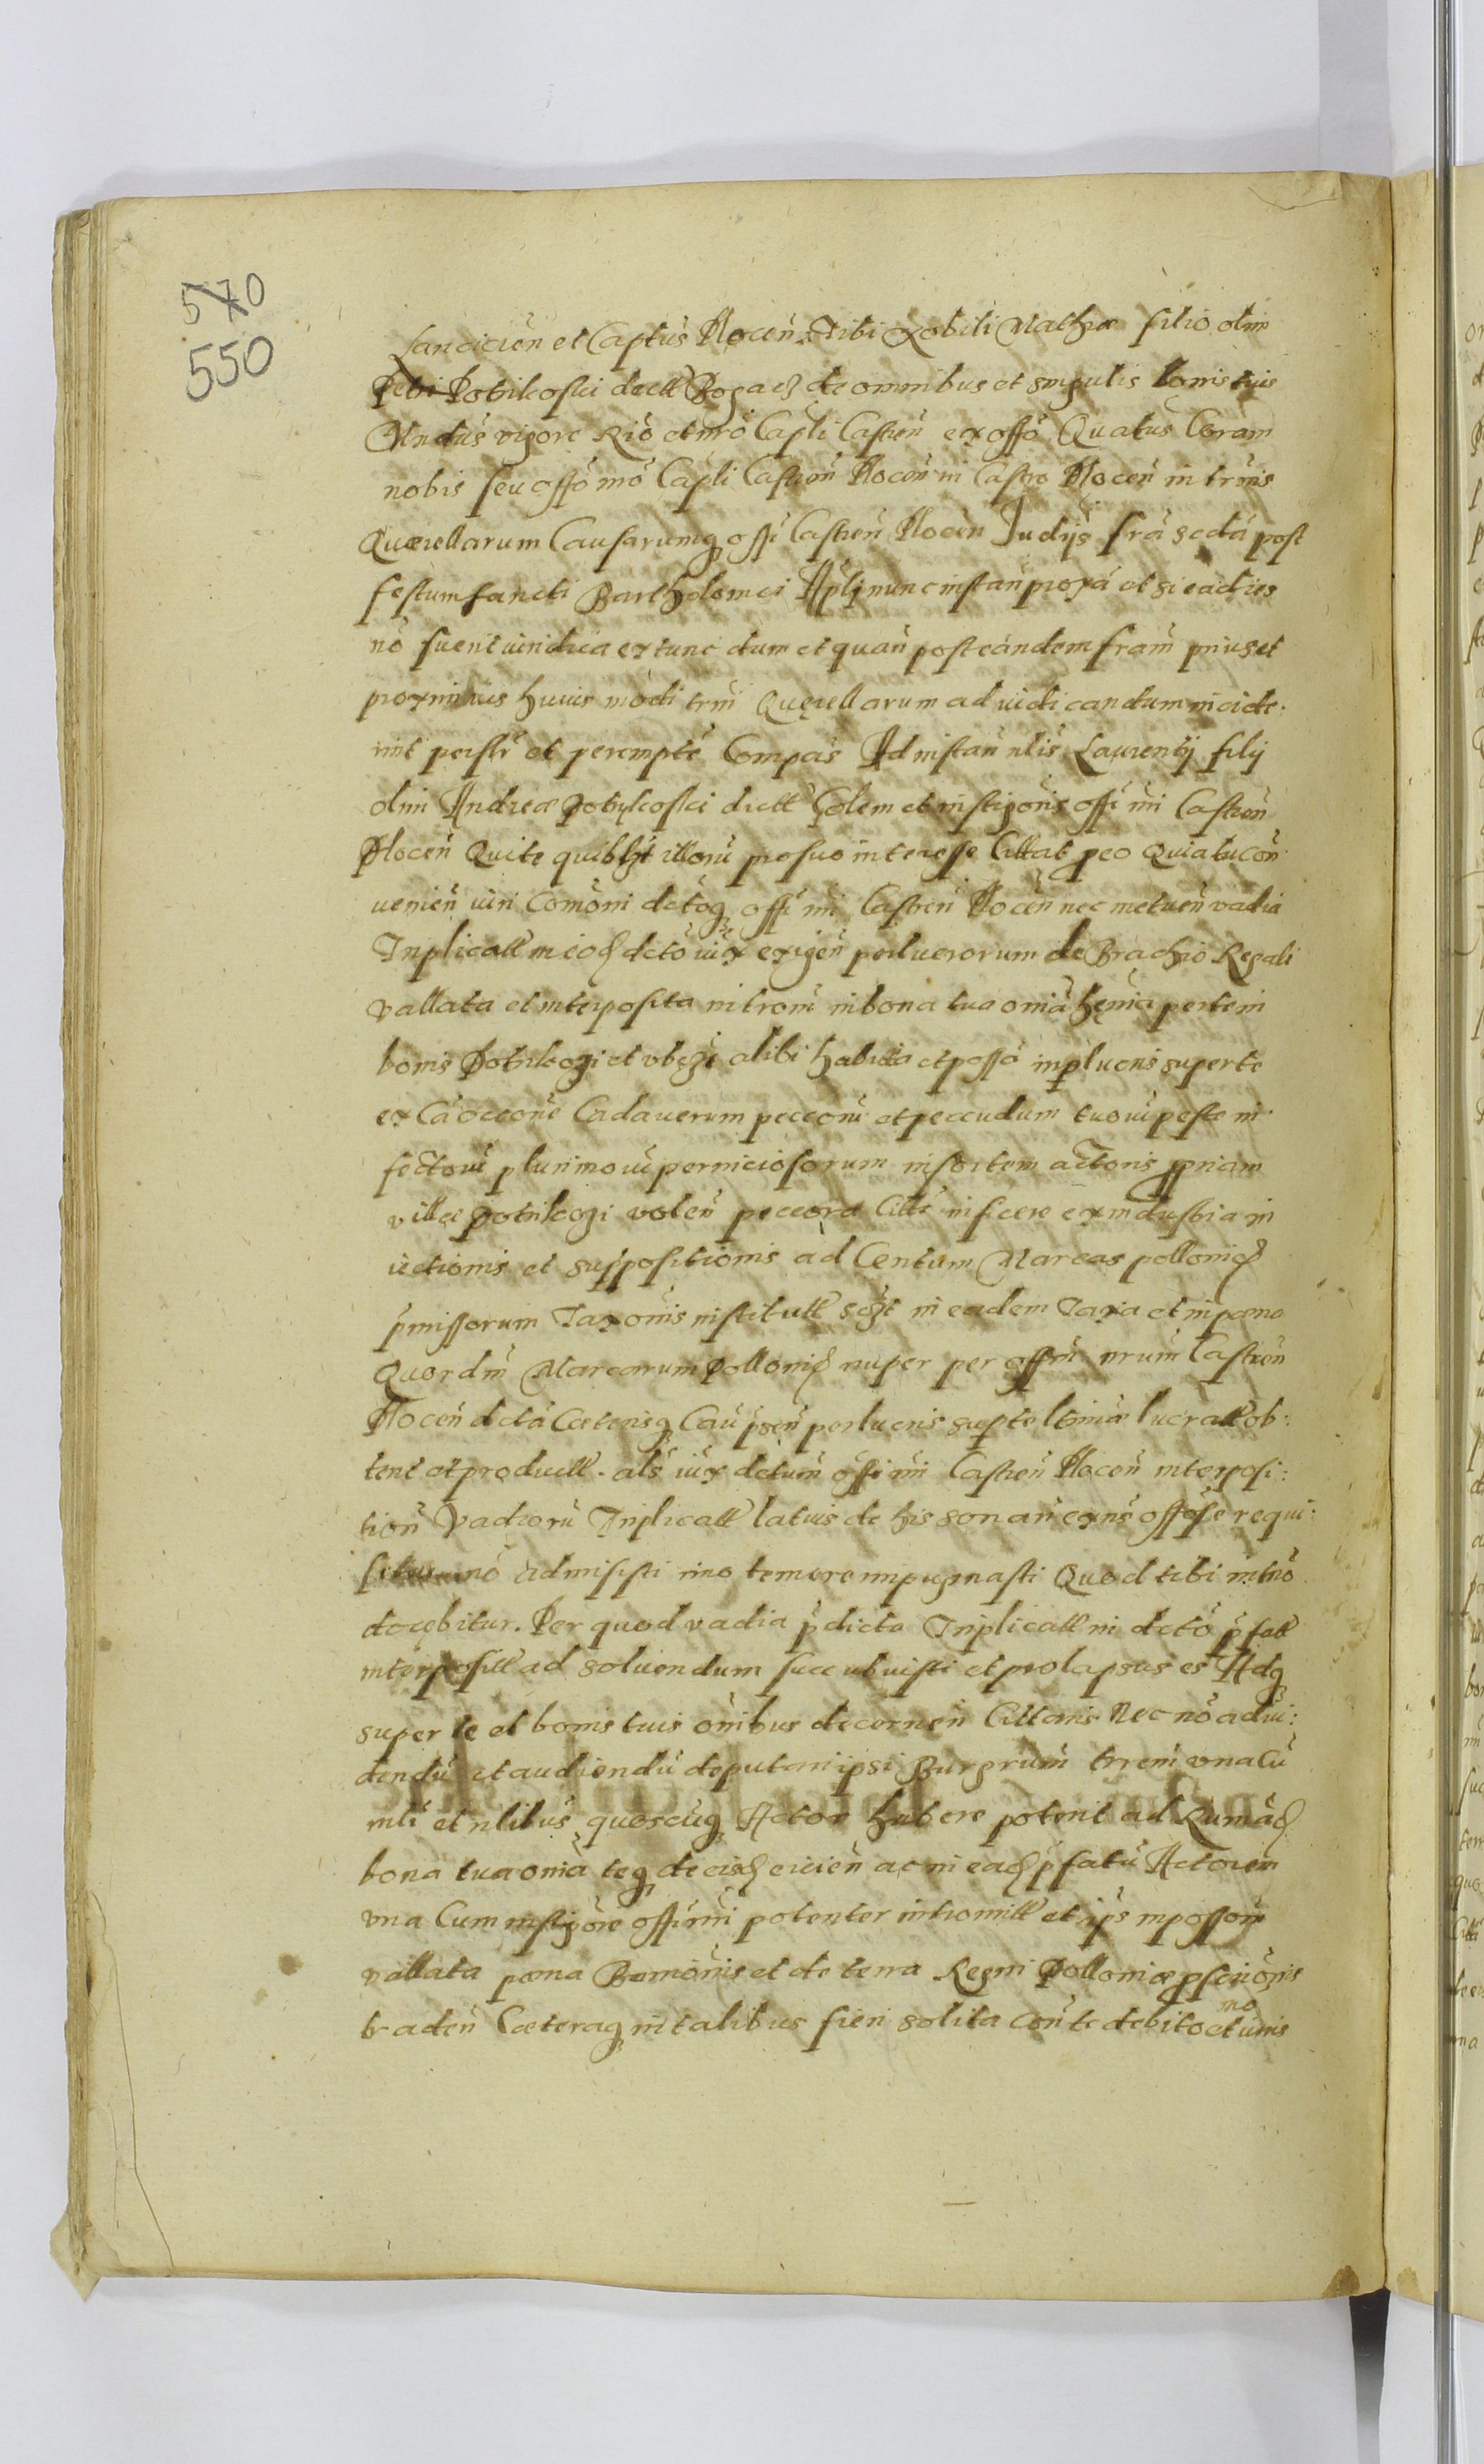 570
550
Lancicien et Captus Plocen Tibi Nobili Mathiæ filio olim
Petri Potrikoski de omnibus et singulis bonis tuis
Mndus vigore Rio et nro Capli Castren ex offo Quatus Coram
nobis seu offo nro Capli Castren Plocen in Castro Plocen in trmis
Quærellarum Causarumq offi Castren Plocen Judijs fra scda post
festum sancti Bartholomei Apli nunc instan proxa et si ea dies
no fuerit iuridica ex tunc dum et quan post eandem fram prius et
proximius huius modi trmi Quęrellarum ad iudicandum incide:
rint perslr et perempte Compas Ad instan nlis Laurentij filij
olim Andreæ Potrikoski et instigoris offi nri Castren
Plocen Qui te quiblzt illoru pro suo interesse Cittat peo Quia tu con
uenien iuri Comoni dctoq offi nri Castren Plocen nec metuen vadia
Triplicall in eod dcto iux exigen per lucrorum de Brachio Regali
vallata et interposita introm in bona tua omia hęnia pertem
bonis Potrikozi et vbqzt alibi habita et possa in plucris super te
ex Ca occone Cadauerum peccoru et peccudum tuoru peste in
fectoru plurimoru perniciosorum in sortem actoris ppriam
villæ Potrikozi volen peccora Citti inficere ex industria in
iectionis et suppositionis ad Centum Marcas polloniq
pmissorum Taxonis instituti sczt in eadem Taxa et in pæna
Quordm Marcarum Polloniq nuper per offm nrum Castren
Plocen dcta Cæterisq Cau psen perlucris sup te ltimæ lucratt ob:
tent et produell. als iux dctum offi nri Castren Plocen interposi:
tion Vadioru Triplicall latius de his sonan exns offose requi:
situs no admisisti imo temere impugnasti Quod tibi in tno
docebitur. Per quod vadia pdicta Triplicall in dcto pfall
interposill ad soluendum succubuisti et prolapsus es Adq
super te et bonis tuis onibus decernen Cittaris Nec no ad vi:
dendu et audiendu deputari ipsi Burgrum trrem vna Cu
mli et nlibus quoscuq Actor habere poterit ad Rumad
bona tua omia teq de eisd eicien ac in ead pfatu Actorem
vna Cum instigore offi nri potenter intromill et ips in possom
vallata pæna Banonis et de terra Regni Polloniæ pscrionis
mo
traden Cæteraq in talibus fieri solita con te debito et iuris